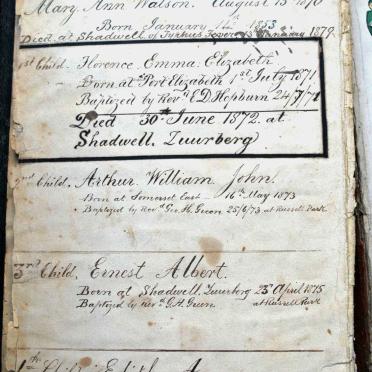 Mary Ann Watson. August 15 1870
Born January 12th 1853
Died at Shadwell of Typhus Fever January 1879.
1st Child. Florence Emma Elizabeth
Born at Port Elizabeth 1st July 1871
Baptized by Revd E D Hepburn 24/7/71
Died 30th June 1872. at
Shadwell, Zuurberg
2nd Child. Arthur William John.
Born at Somerset East 16th May 1873
Baptized by Revd Geo. H. Green 25/6/73 at Russell Park
3rd Child. Ernest Albert.
Born at Shadwell, Zuurberg 23rd April 1875
Baptized by Revd G. H. Green at Russell Park
4th Child. Edith